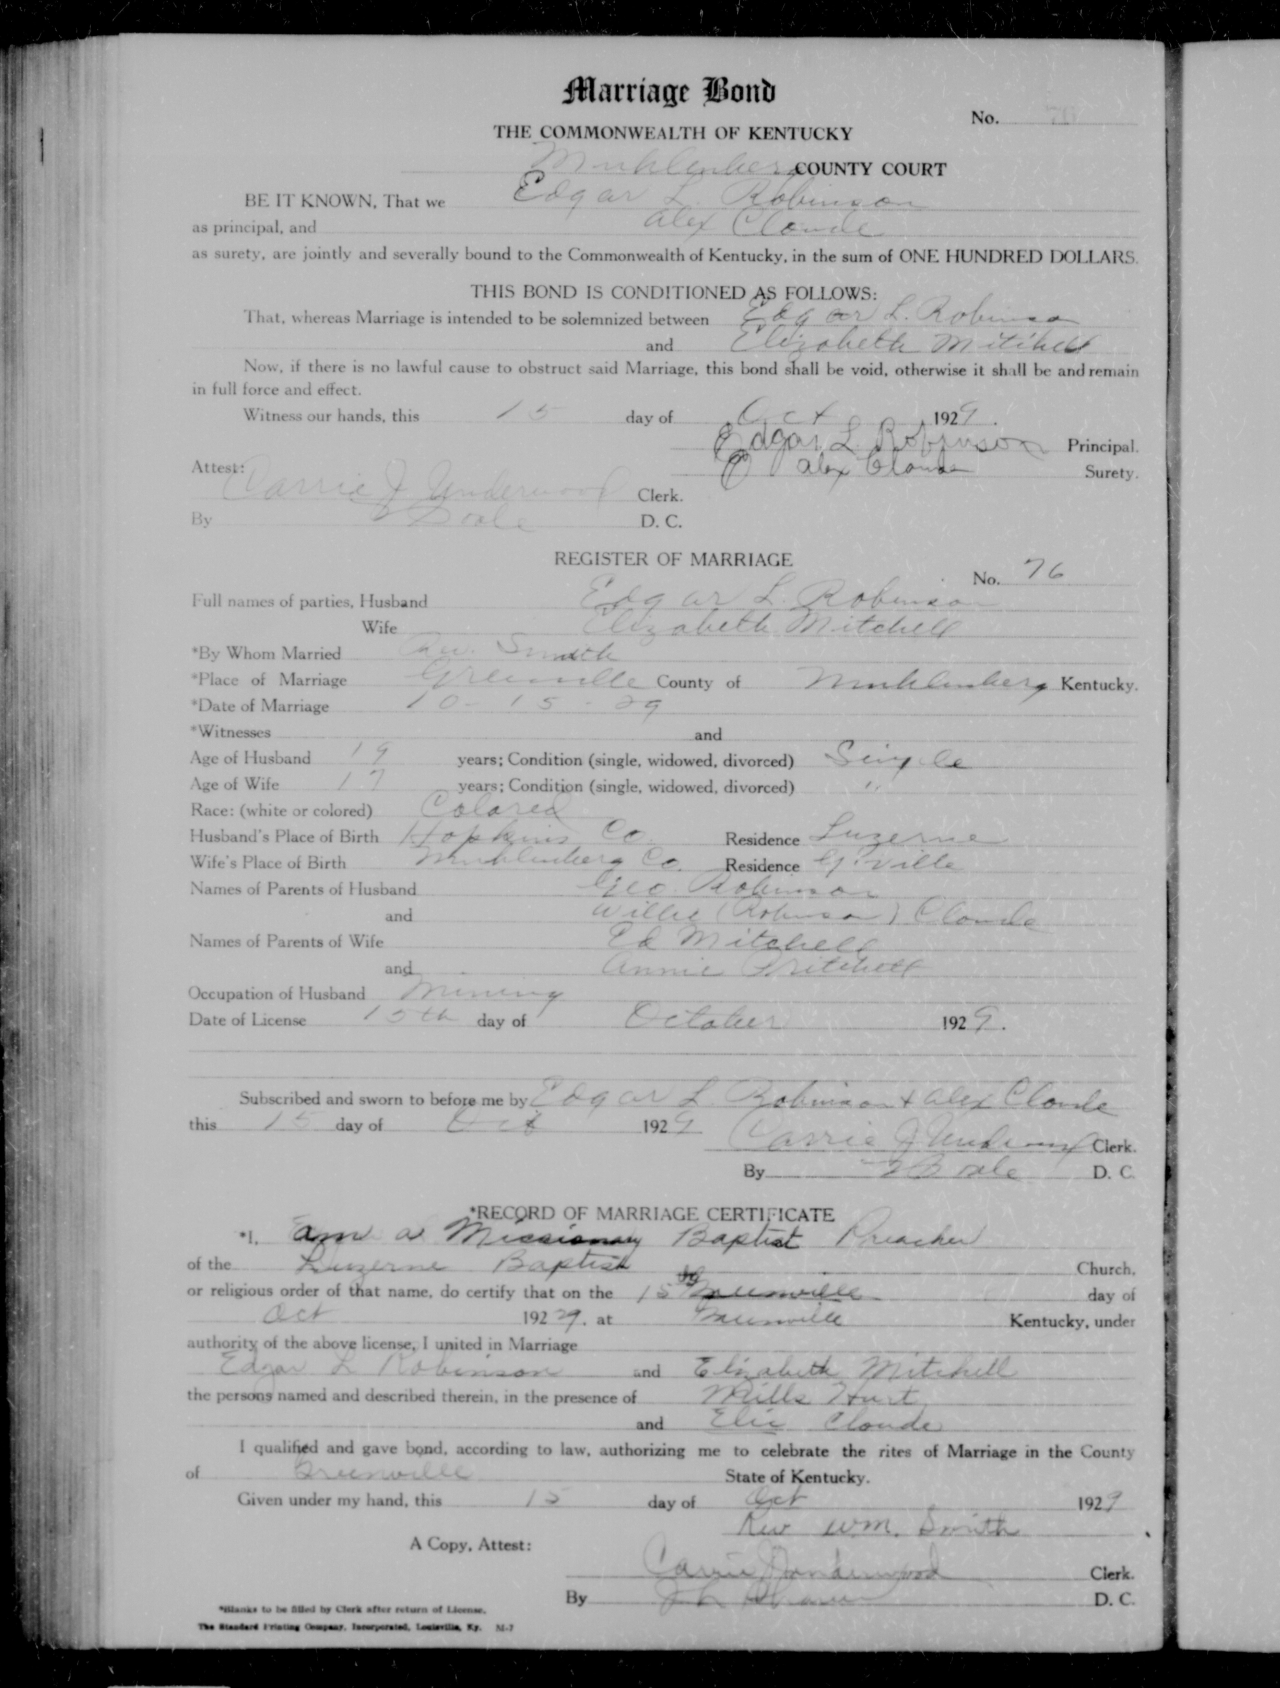 Marriage Bond
No. 76
THE COMMONWEALTH OF KENTUCKY
Muhlenberg COUNTY COURT
BE IT KNOWN, That we Edgar L. Robinson
as principal, and Alex Cloude
as surety, are jointly and severally bound to the Commonwealth of Kentucky, in the sum of ONE HUNDRED DOLLARS.
THIS BOND IS CONDITIONED AS FOLLOWS:
That, whereas Marriage is intended to be solemnized between Edgar L. Robinson
and Elizabeth Mitchell
Now, if there is no lawful cause to obstruct said Marriage, this bond shall be void, otherwise it shall be and remain
in full force and effect.
Witness our hands, this 15 day of Oct 1929.
Edgar L. Robinson Principal.
Attest: Alex Cloude Surety.
Carrie J Underwood Clerk.
By D. C.
REGISTER OF MARRIAGE
No. 76
Full names of parties, Husband Edgar L. Robinson
Wife Elizabeth Mitchell
*By Whom Married Rev. Smith
*Place of Marriage Greenville County of Muhlenberg Kentucky.
*Date of Marriage 10-15-29
*Witnesses and
Age of Husband 19 years; Condition (single, widowed, divorced) Single
Age of Wife 17 years; Condition (single, widowed, divorced) "
Race: (white or colored) Colored
Husband's Place of Birth Hopkins Co. Residence Luzerne
Wife's Place of Birth Muhlenberg Co. Residence G'ville
Names of Parents of Husband Geo. Robinson
and Willie (Robinson) Cloude
Names of Parents of Wife Ed Mitchell
and Annie Pritchett
Occupation of Husband Mining
Date of License 15th day of October 1929.
Subscribed and sworn to before me by Edgar L. Robinson + Alex Cloude
this 15 day of Oct 1929
Carrie J Underwood Clerk.
By D. C.
*RECORD OF MARRIAGE CERTIFICATE
*I, am a Missionary Baptist Preacher
of the Luzerne Baptist Church.
or religious order of that name, do certify that on the 15 day of
Oct 192 29, at Greenville Kentucky, under
authority of the above license, I united in Marriage
Edgar L Robinson and Elizabeth Mitchell
the persons named and described therein, in the presence of Mills Hurt
and Elic Cloude
I qualified and gave bond, according to law, authorizing me to celebrate the rites of Marriage in the County
of Greenville State of Kentucky.
Given under my hand, this 15 day of Oct 1929
Rev Wm. Smith
A Copy, Attest:
Carrie J Underwood Clerk.
By D. C.
*Blanks to be filled by Clerk after return of License.
The Standard Printing Company, Incorporated, Louisville, Ky. M-7